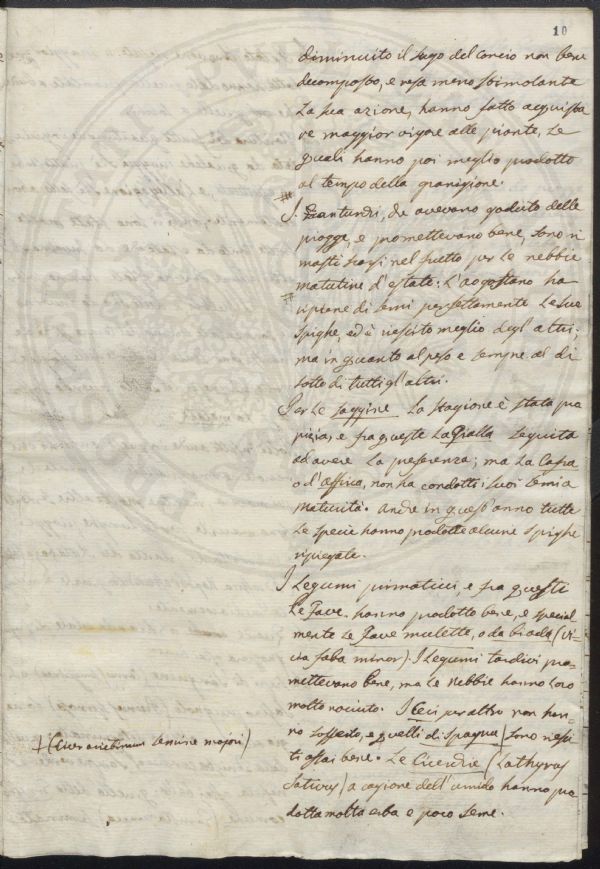 10
diminuito il sugo del concio non bene
decomposto, e resa meno stimolante
la sua azione, hanno fatto acquista
re maggior vigore alle piante, le
quali hanno poi meglio prodotto
al tempo della granigione.
I Grantundi, che avevano goduto delle
piogge, e promettevano bene, sono ri
masti scarsi nel frutto per le nebbie
matutine d'estate: L'aogostano ha
ripiene di semi perfettamente le sue
spighe, ed è riescito meglio degl'altri;
ma in quanto al peso e sempre al di
sotto di tutti gl'altri.
Per le saggine la stagione è stata pro
pizia, e fra queste la Gialla seguita
ad avere la preferenza; ma la Cafra
o d'Affrica, non ha condotti i suoi semi a
maturità. Anche in quest'anno tutte
le specie hanno prodotte alcune spighe
ripiegate.
I Legumi primaticci, e fra questi
le Fave hanno prodotto bene, e special
mente le Fave mulette, o da biada (vi
cia faba minor). I Legumi tardivi pro
mettevano bene, ma le Nebbie hanno loro
molto nociuto. I Ceci per altro non han
no sofferto, e quelli di Spagna sono riesci
ti assai bene. Le Cicerchie (Lathyrus
Sativus) a cagione dell'umido hanno pro
dotta molta erba e poco seme.
+ (Cicer arietinum semine majori)